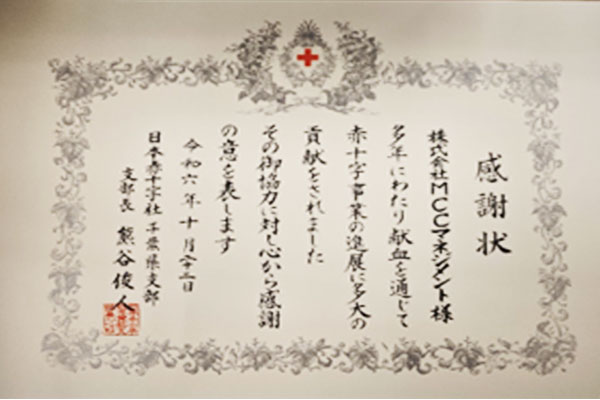 感謝状
株式会社MCCマネジメント様
多年にわたり献血を通じて
赤十字事業の進展に多大の
貢献をされました
その御協力に対し心から感謝
の意を表します
令和六年十月二十三日
日本赤十字社千葉県支部
支部長 熊谷俊人